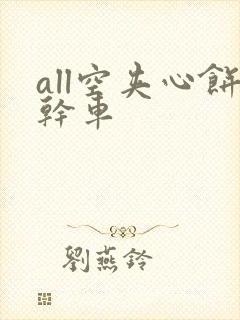 all空夹心餅
幹車
劉燕鈴